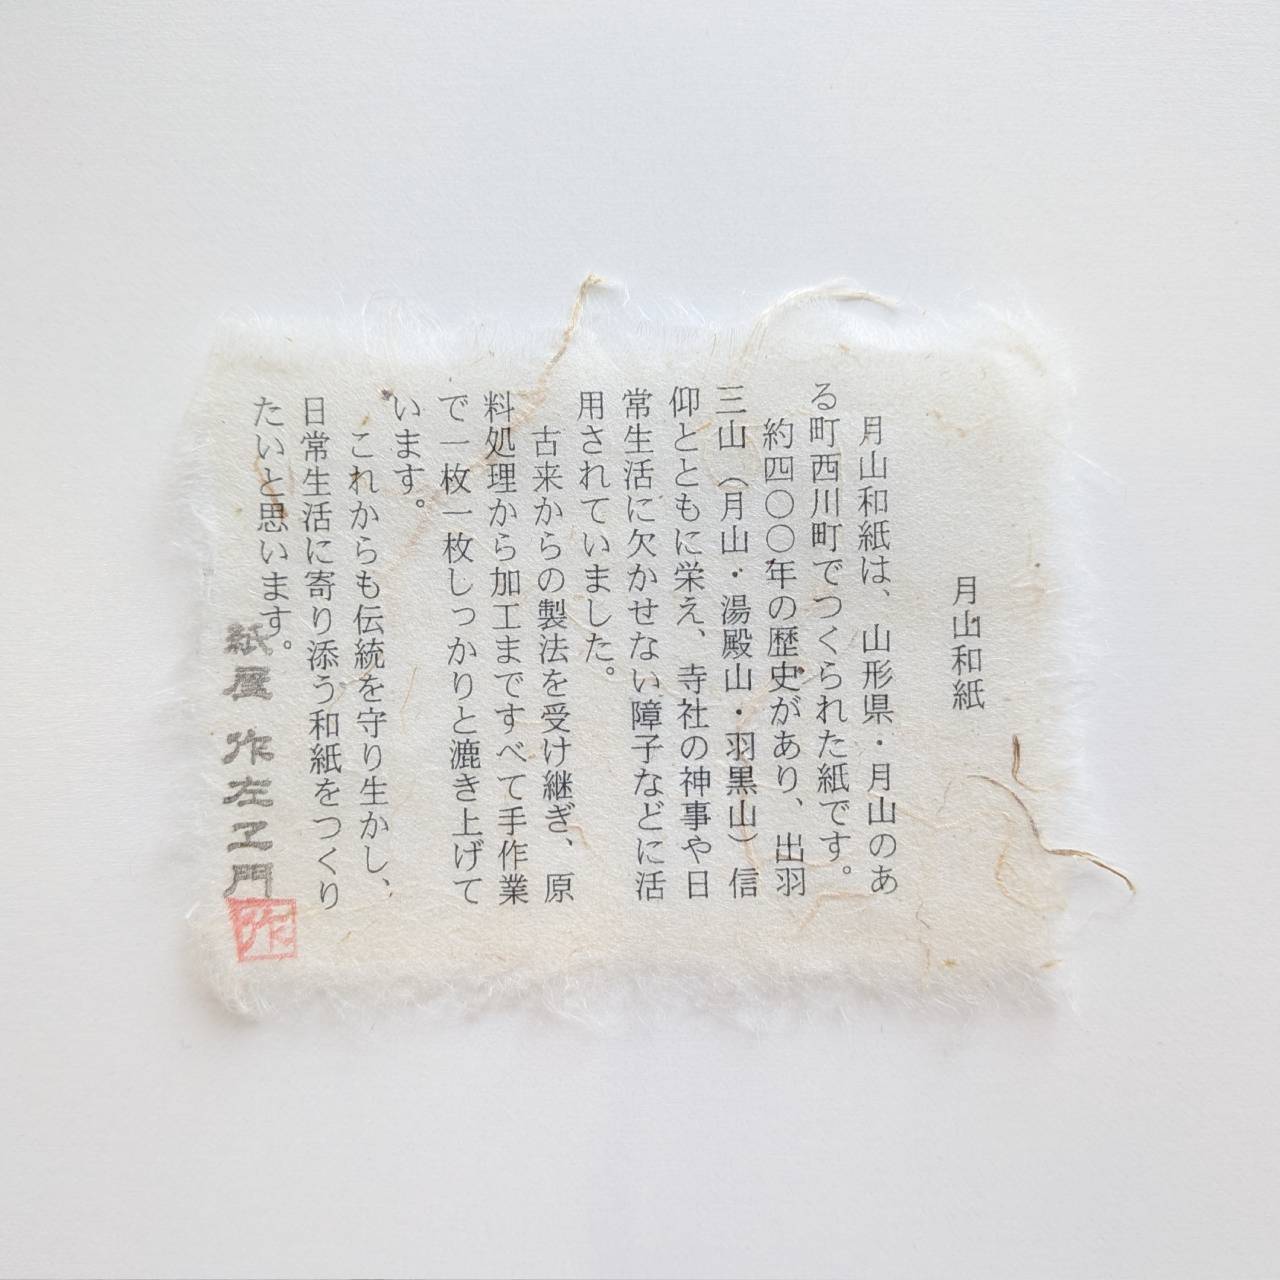 月山和紙
月山和紙は、山形県・月山のあ
る町西川町でつくられた紙です。
約四〇〇年の歴史があり、出羽
三山（月山・湯殿山・羽黒山）信
仰とともに栄え、寺社の神事や日
常生活に欠かせない障子などに活
用されていました。
古来からの製法を受け継ぎ、原
料処理から加工まですべて手作業
で一枚一枚しっかりと漉き上げて
います。
これからも伝統を守り生かし、
日常生活に寄り添う和紙をつくり
たいと思います。
紙屋 作左エ門
作